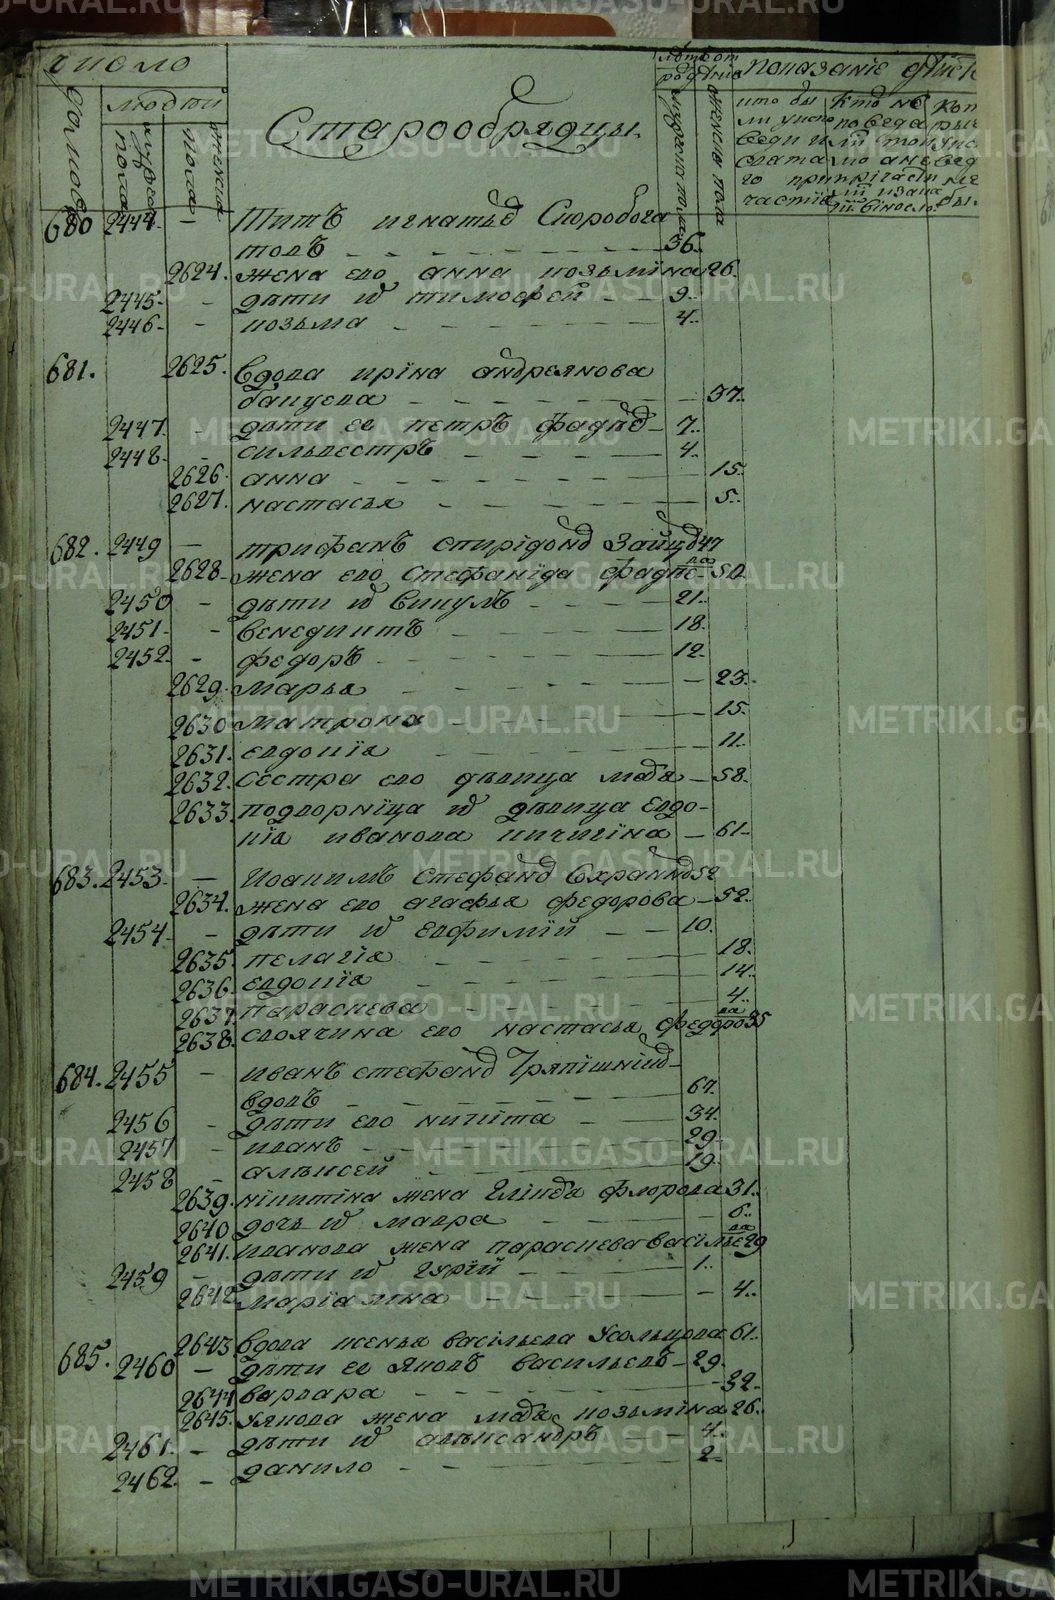 число
домовъ
людей
мужеска
пола
женска
пола
Старообрядцы.
лѣта от
рожденія
мужеска пола
женска пола
показаніе дѣйст
кто бы
ли у испо
веди и
свата
го
частія
кто не
поведа
ли токмо
а не
причасти
680 2444. - Титъ игнатьев Скоробога
товъ - - - 36.
2624. жена ево анна козьмина 26.
2445. - дѣти их тимофей - - 9.
2446. - козьма - - - 4.
681. 2625. Вдова ирiна андреянова
бацуева - - - 37.
2447. - дѣти ее петръ фадѣев - 7.
2448. - сильвестръ - - - 4.
2626. анна - - - 15.
2627. настасья - - - 5.
682. 2449 - трифанъ спирiдонов Зайцов 47
2628. жена ево Стефанiда фадѣева 50.
2450 - дѣти их викулъ - - - 21.
2451. - венедиктъ - - - 18.
2452. - федоръ - - - 12.
2629. марья - - - 23.
2630 матрона - - - 15.
2631. евдокiя - - - 11.
2632. сестра ево дѣвица мавра - 58.
2633. подворнiца их дѣвица евдо-
кiя иванова кичигiна - 61.
683. 2453. - Иоакимъ стефанов 52
2634. жена ево агафья федорова - 52.
2454. - дѣти их евфимiй - - 10.
2635. пелагiя - - - 18.
2636. евдокiя - - - 14.
2637. параскева - - - 4.
2638. своячина ево настасья федорова 35
684. 2455 - иванъ стефанов Тряпiшнiков-
вдовъ - - - 67.
2456 - дѣти ево никита - - 34.
2457 - иванъ - - - 29.
2458 - алѣксей - - - 19.
2639. нiкитiна жена глiкерiя флорова 31.
2640 дочь их мавра - - - 6.
2641. иванова жена параскева васiльева 29
2459 - дѣти их гурiй - - - 1.
2642 марiамна - - - 4.
685. 2643 вдова ксенья васiльева Усольцова 61.
2460 - дѣти ее яковъ васильевъ - 29.
2644 варвара - - - 32.
2645. якова жена мавра козьмiна 26.
2461. - дѣти их алѣксандръ - - 4.
2462. - данило - - - 2.
METRIKI.GASO-URAL.RU